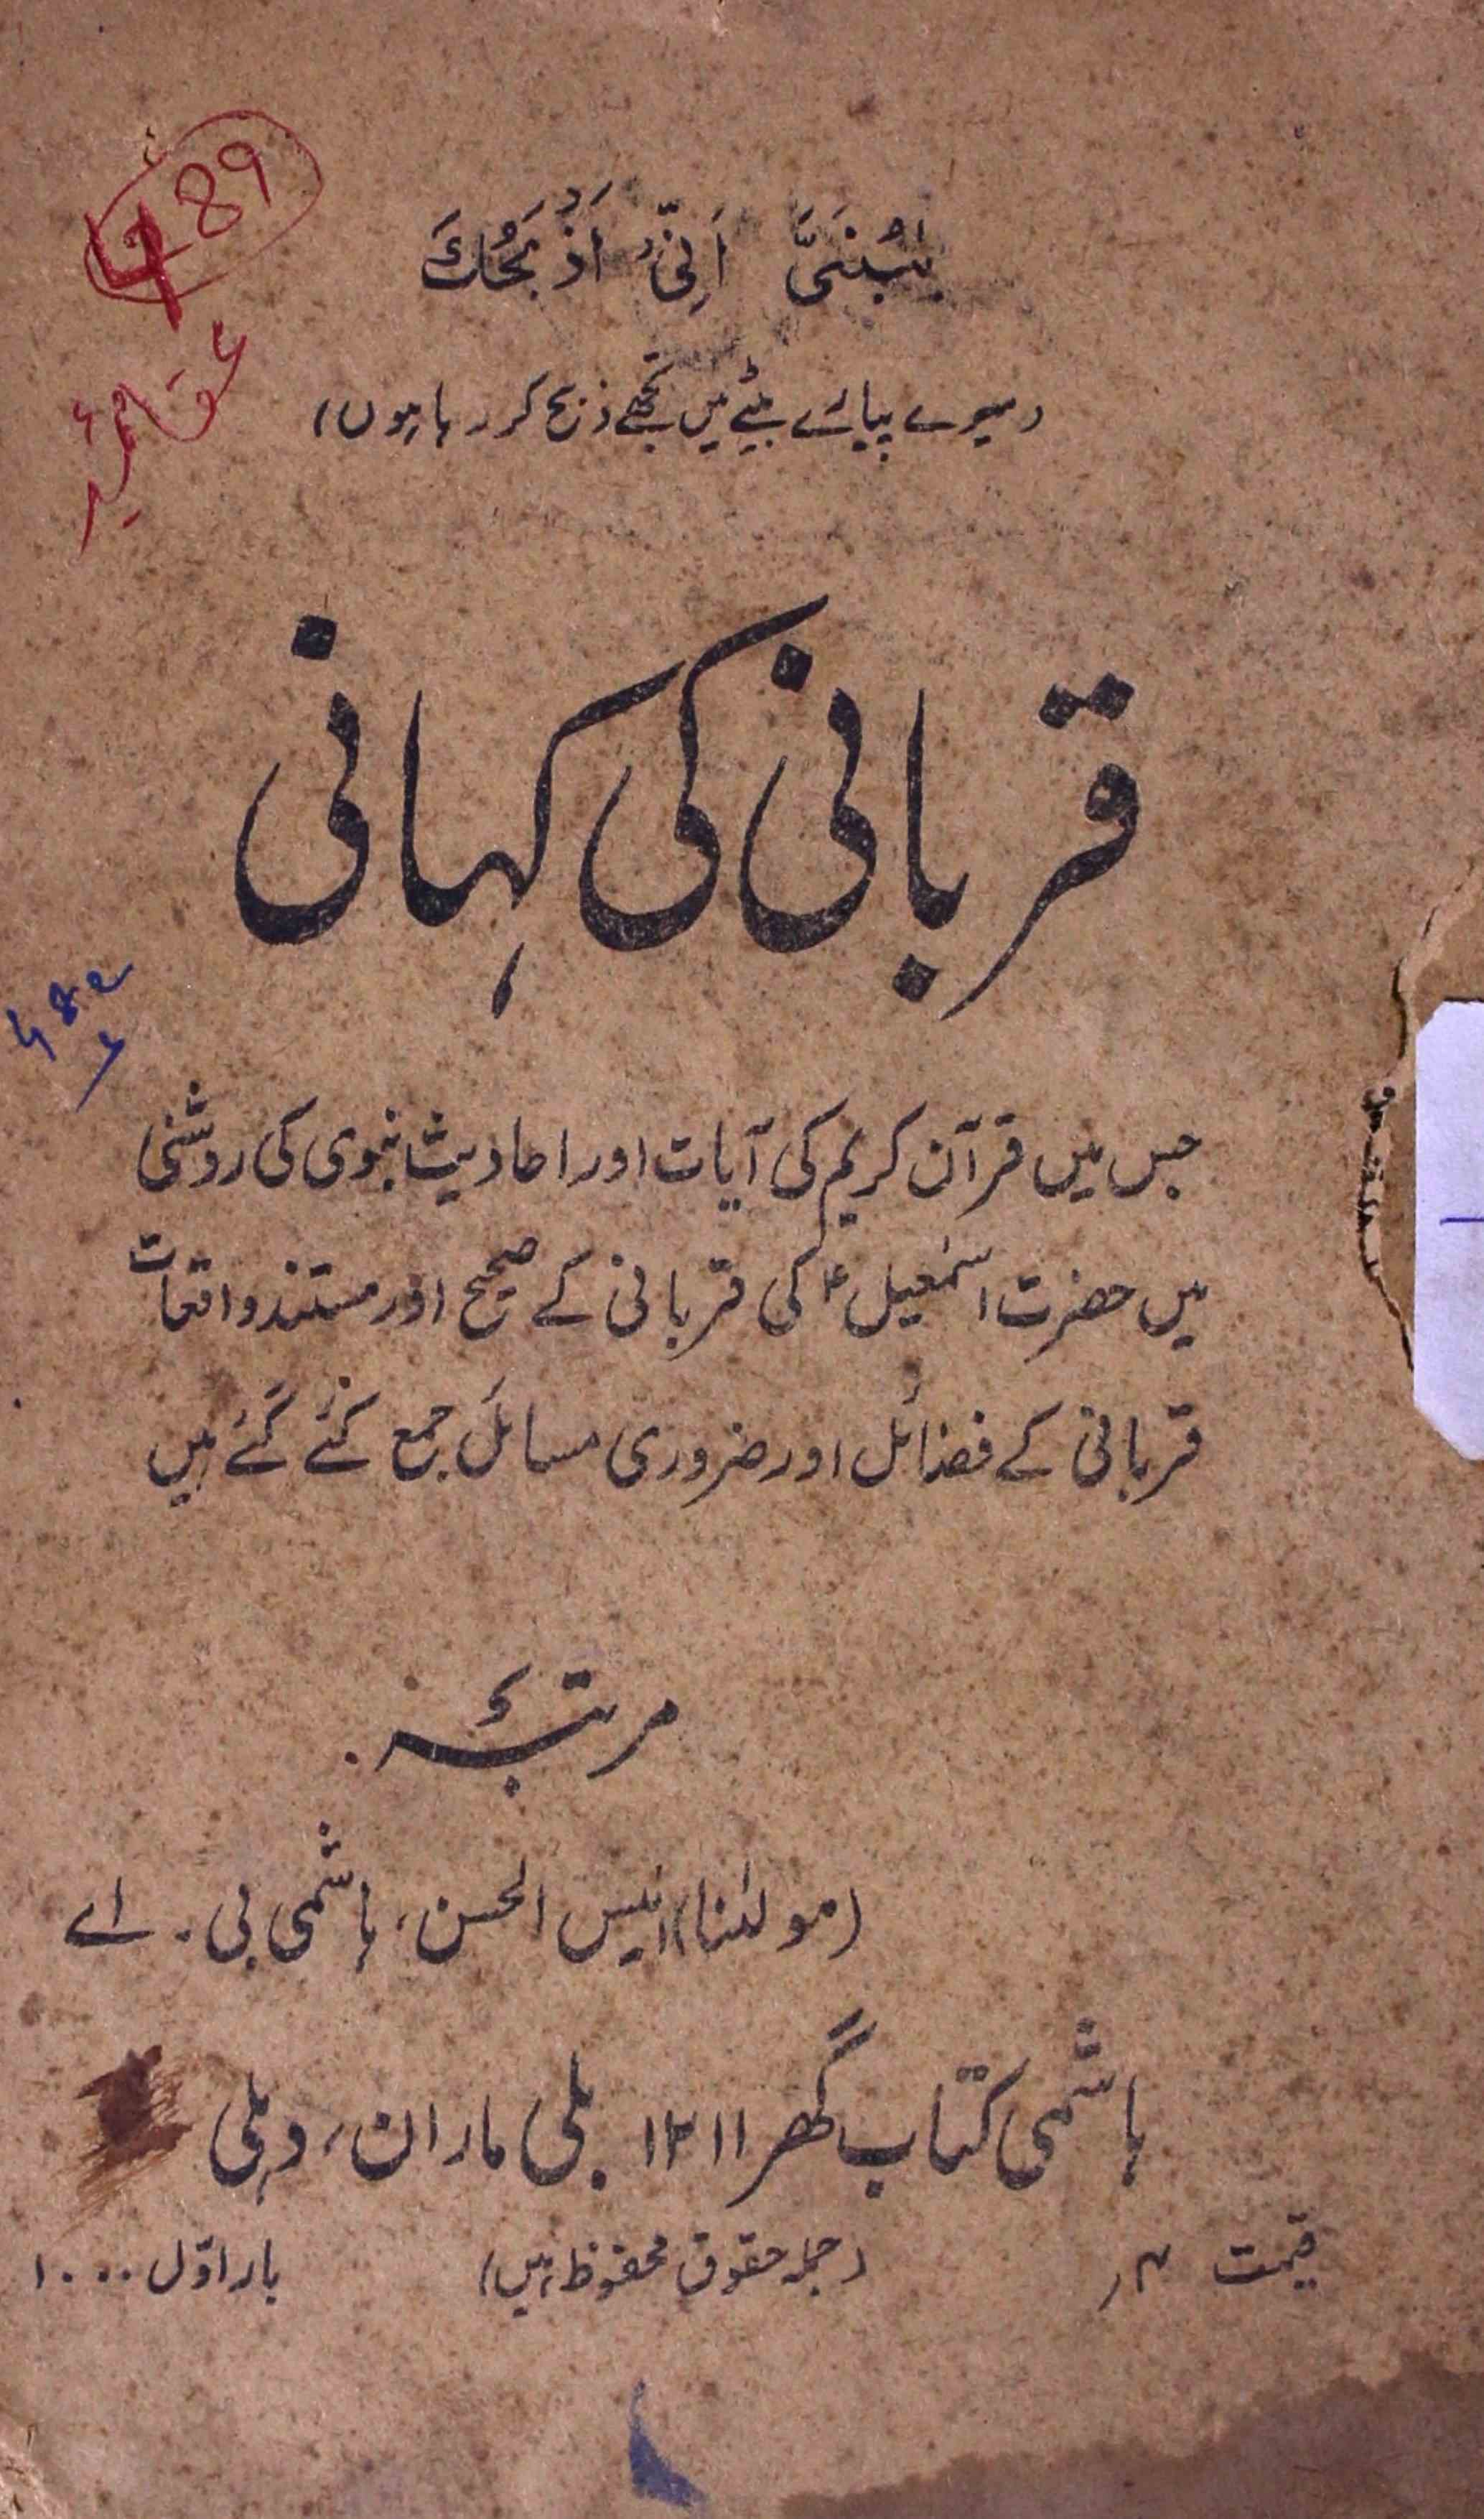 یٰبُنَیَّ اَنِّیْ اَذْبَحُكَ
(میرے پیارے بیٹے میں تجھے ذبح کر رہا ہوں)
489
عقائد
قربانی کی کہانی
جس میں قرآن کریم کی آیات اور احادیث نبوی کی روشنی
میں حضرت اسمٰعیلؑ کی قربانی کے صحیح اور مستند واقعات
قربانی کے فضائل اور ضروری مسائل جمع کئے گئے ہیں
مرتبہٴ
(مولٰنا) انیس الحسن، ہاشمی بی۔ اے
ہاشمی کتاب گھر ۱۲۱۱ بلی ماران، دہلی
قیمت ۴ر
(جملہ حقوق محفوظ ہیں)
بار اوّل ۱۰۰۰